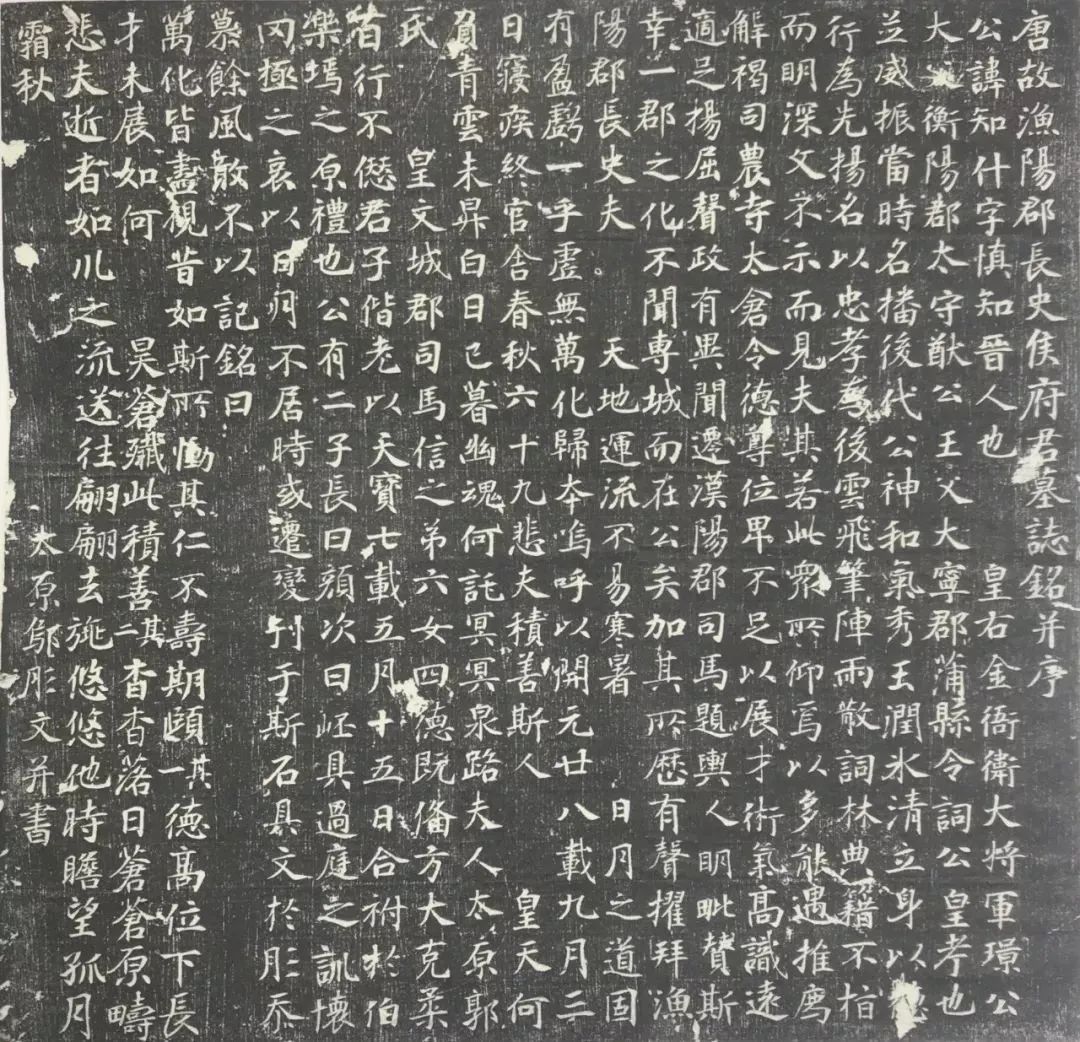 唐故漁陽郡長史侯府君墓誌銘并序
公諱知什字慎知晉人也 皇右金衙衛大将軍璟公
大父衡陽郡太守猷公王父大寧郡蒲縣令詞公皇考也
並威振當時名播後代公神和氣秀玉潤冰清立身以德
行為先揚名以忠孝為後雲飛筆陣雨散詞林典籍不指
而明深文不示而見夫其若此衆所仰焉以多能遇推薦
解褐司農寺太倉令德尊位卑不足以展才術氣高識遠
適足揚屈聲政有異聞遷漢陽郡司馬題輿人明毗賛斯
幸一郡之化不聞専城而在公矣加其所歷有聲擢拜漁
陽郡長史夫 天地運流不易寒暑 日月之道固
有盈虧一乎靈無萬化歸夲嗚呼以開元廿八載九月三
日寝疾終官舍春秋六十九悲夫積善斯人 皇天何
負青雲未昇白日已暮幽魂何託冥冥泉路夫人太原郭
氏 皇文城郡司馬信之弟六女四德既俻方大克柔
苟行不僭君子偕老以天寶七載五月十五日合祔於伯
樂塢之原禮也公有二子長曰顔次曰岯具過庭之訓懷
罔極之哀以日月不居時或遷變刋于斯石具文於肜忝
慕餘風敢不以記銘曰
萬化皆盡視昔如斯所慟其仁不壽期頤其一德高位下長
才未展如何 昊蒼殱此積善其二杳杳落日蒼蒼原疇
悲夫逝者如川之流送往翩翩去旐悠悠他時瞻望孤月
霜秋 太原鄔肜文并書